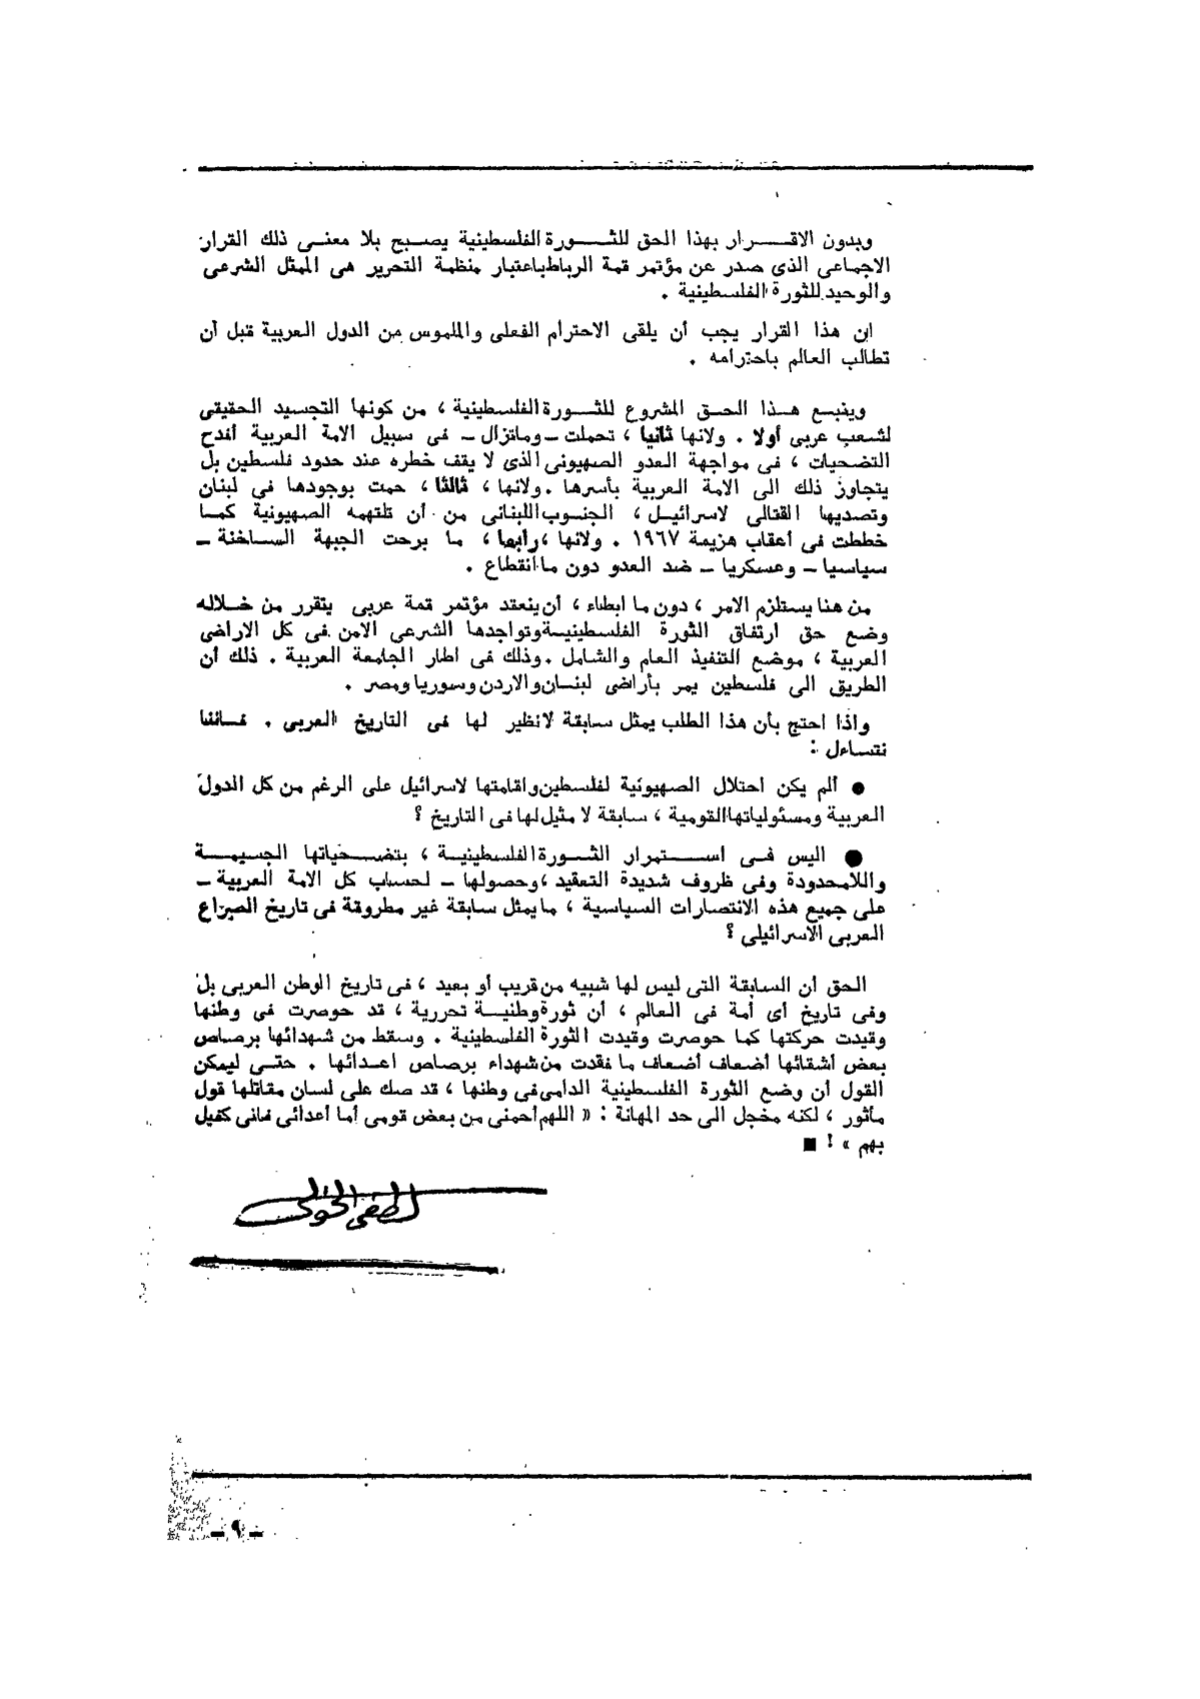 وبدون الاقـــرار بهذا الحق للثـــورة الفلسطينية يصـبح بلا معنـى ذلك القرار
الاجماعى الذى صدر عن مؤتمر قمة الرباط باعتبار منظمة التحرير هى الممثل الشرعى
والوحيد للثورة الفلسطينية .
ان هذا القرار يجب أن يلقى الاحترام الفعلى والملموس من الدول العربية قبل أن
تطالب العالم باحترامه .
وينبـع هـذا الحـق المشروع للثـورة الفلسطينية ، من كونها التجسيد الحقيقى
لشعب عربى أولا . ولانها ثانيا ، تحملت ـ وماتزال ـ فى سبيل الامة العربية أفدح
التضحيات ، فى مواجهة العدو الصهيونى الذى لا يقف خطره عند حدود فلسطين بل
يتجاوز ذلك الى الامة العربية بأسرها . ولانها ، ثالثا ، حمت بوجودها فى لبنان
وتصديها القتالى لاسرائيـل ، الجنـوب اللبنانى من أن تلتهمه الصهيونية كمـا
خططت فى أعقاب هزيمة ١٩٦٧ . ولانها ، رابعا ، ما برحت الجبهة السـاخنة ـ
سياسيا ـ وعسكريا ـ ضد العدو دون ما انقطاع .
من هنا يستلزم الامر ، دون ما ابطاء ، أن ينعقد مؤتمر قمة عربى يتقرر من خـلاله
وضـع حق ارتفاق الثورة الفلسطينيـة وتواجدها الشرعى الامن فى كل الاراضى
العربية ، موضع التنفيذ العام والشامل . وذلك فى اطار الجامعة العربية . ذلك أن
الطريق الى فلسطين يمر بأراضى لبنـان والاردن وسوريا ومصر .
واذا احتج بأن هذا الطلب يمثل سابقة لا نظير لها فى التاريخ العربى . فـاننا
نتساءل :
● ألم يكن احتلال الصهيونية لفلسطين واقامتها لاسرائيل على الرغم من كل الدول
العربية ومسئولياتها القومية ، سابقة لا مثيل لها فى التاريخ ؟
● اليس فـى اسـتمرار الثـورة الفلسطينيـة ، بتضـحياتها الجسيمـة
واللامحدودة وفى ظروف شديدة التعقيد ، وحصولها ـ لحساب كل الامة العربية ـ
على جميع هذه الانتصارات السياسية ، ما يمثل سابقة غير مطروقة فى تاريخ الصراع
العربى الاسرائيلى ؟
الحق أن السابقة التى ليس لها شبيه من قريب أو بعيد ، فى تاريخ الوطن العربى بل
وفى تاريخ أى أمة فى العالم ، أن ثورة وطنيـة تحررية ، قد حوصرت فى وطنها
وقيدت حركتها كما حوصرت وقيدت الثورة الفلسطينية . وسقط من شهدائها برصاص
بعض أشقائها أضعاف أضعاف ما فقدت من شهداء برصاص اعـدائها . حتـى ليمكن
القول أن وضع الثورة الفلسطينية الدامى فى وطنها ، قد صك على لسان مقاتلها قول
مأثور ، لكنه مخجل الى حد المهانة : « اللهم أحمنى من بعض قومى أما أعدائى فانى كفيل
بهم » ! ■
لطفى الخولى
ـ ٩ ـ